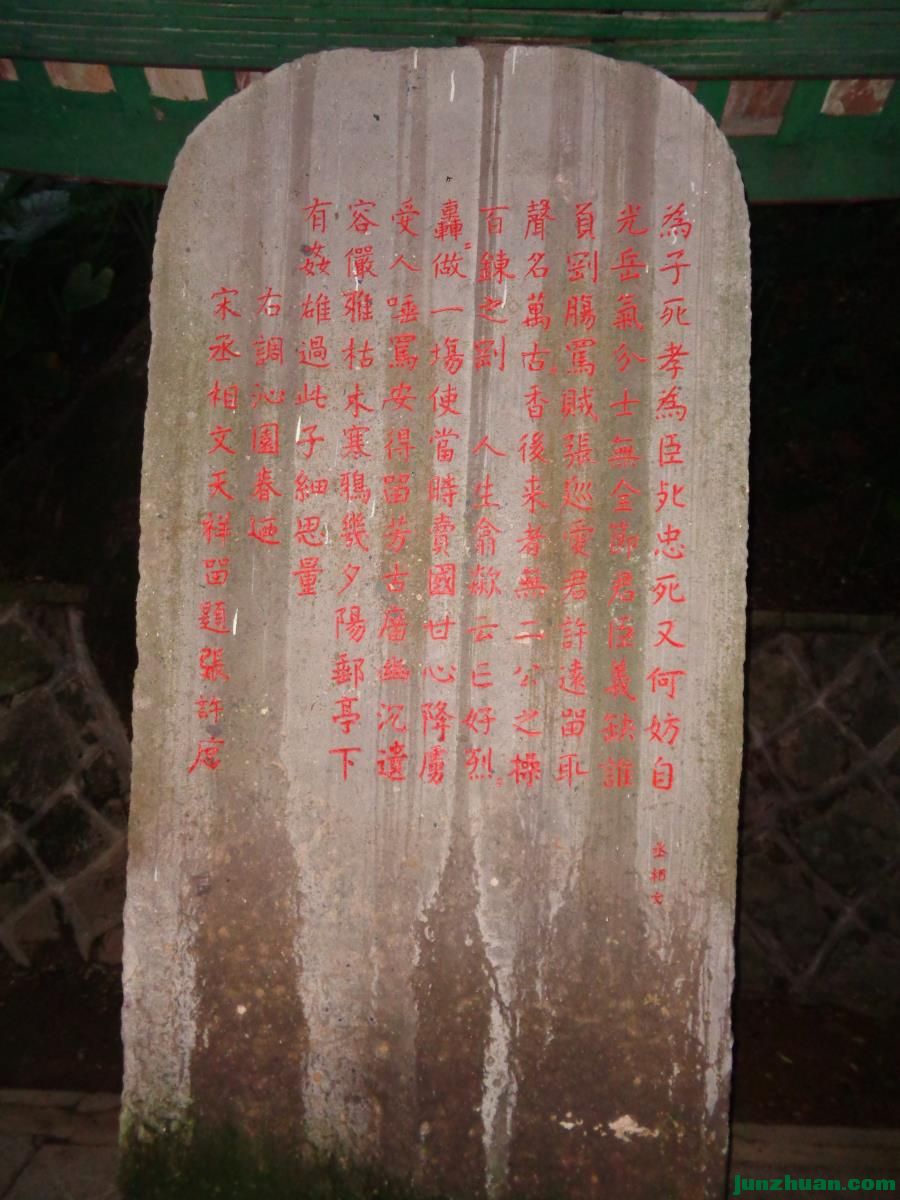 為子死孝為臣死忠死又何妨自
光岳氣分士無全節君臣義缺誰
負剛膓罵賊張巡愛君許遠畱取
聲名萬古香後来者無二公之操
百鍊之剛 人生翕歘云亡好烈〻
轟〻做一塲使當時賣國甘心降虜
受人唾罵安得畱芳古廟幽沉遺
容儼雅枯木寒鴉幾夕陽郵亭下
有姦雄過此子細思量
右調沁園春廼
宋丞相文天祥畱題張許庙
丞相文
junzhuan.com